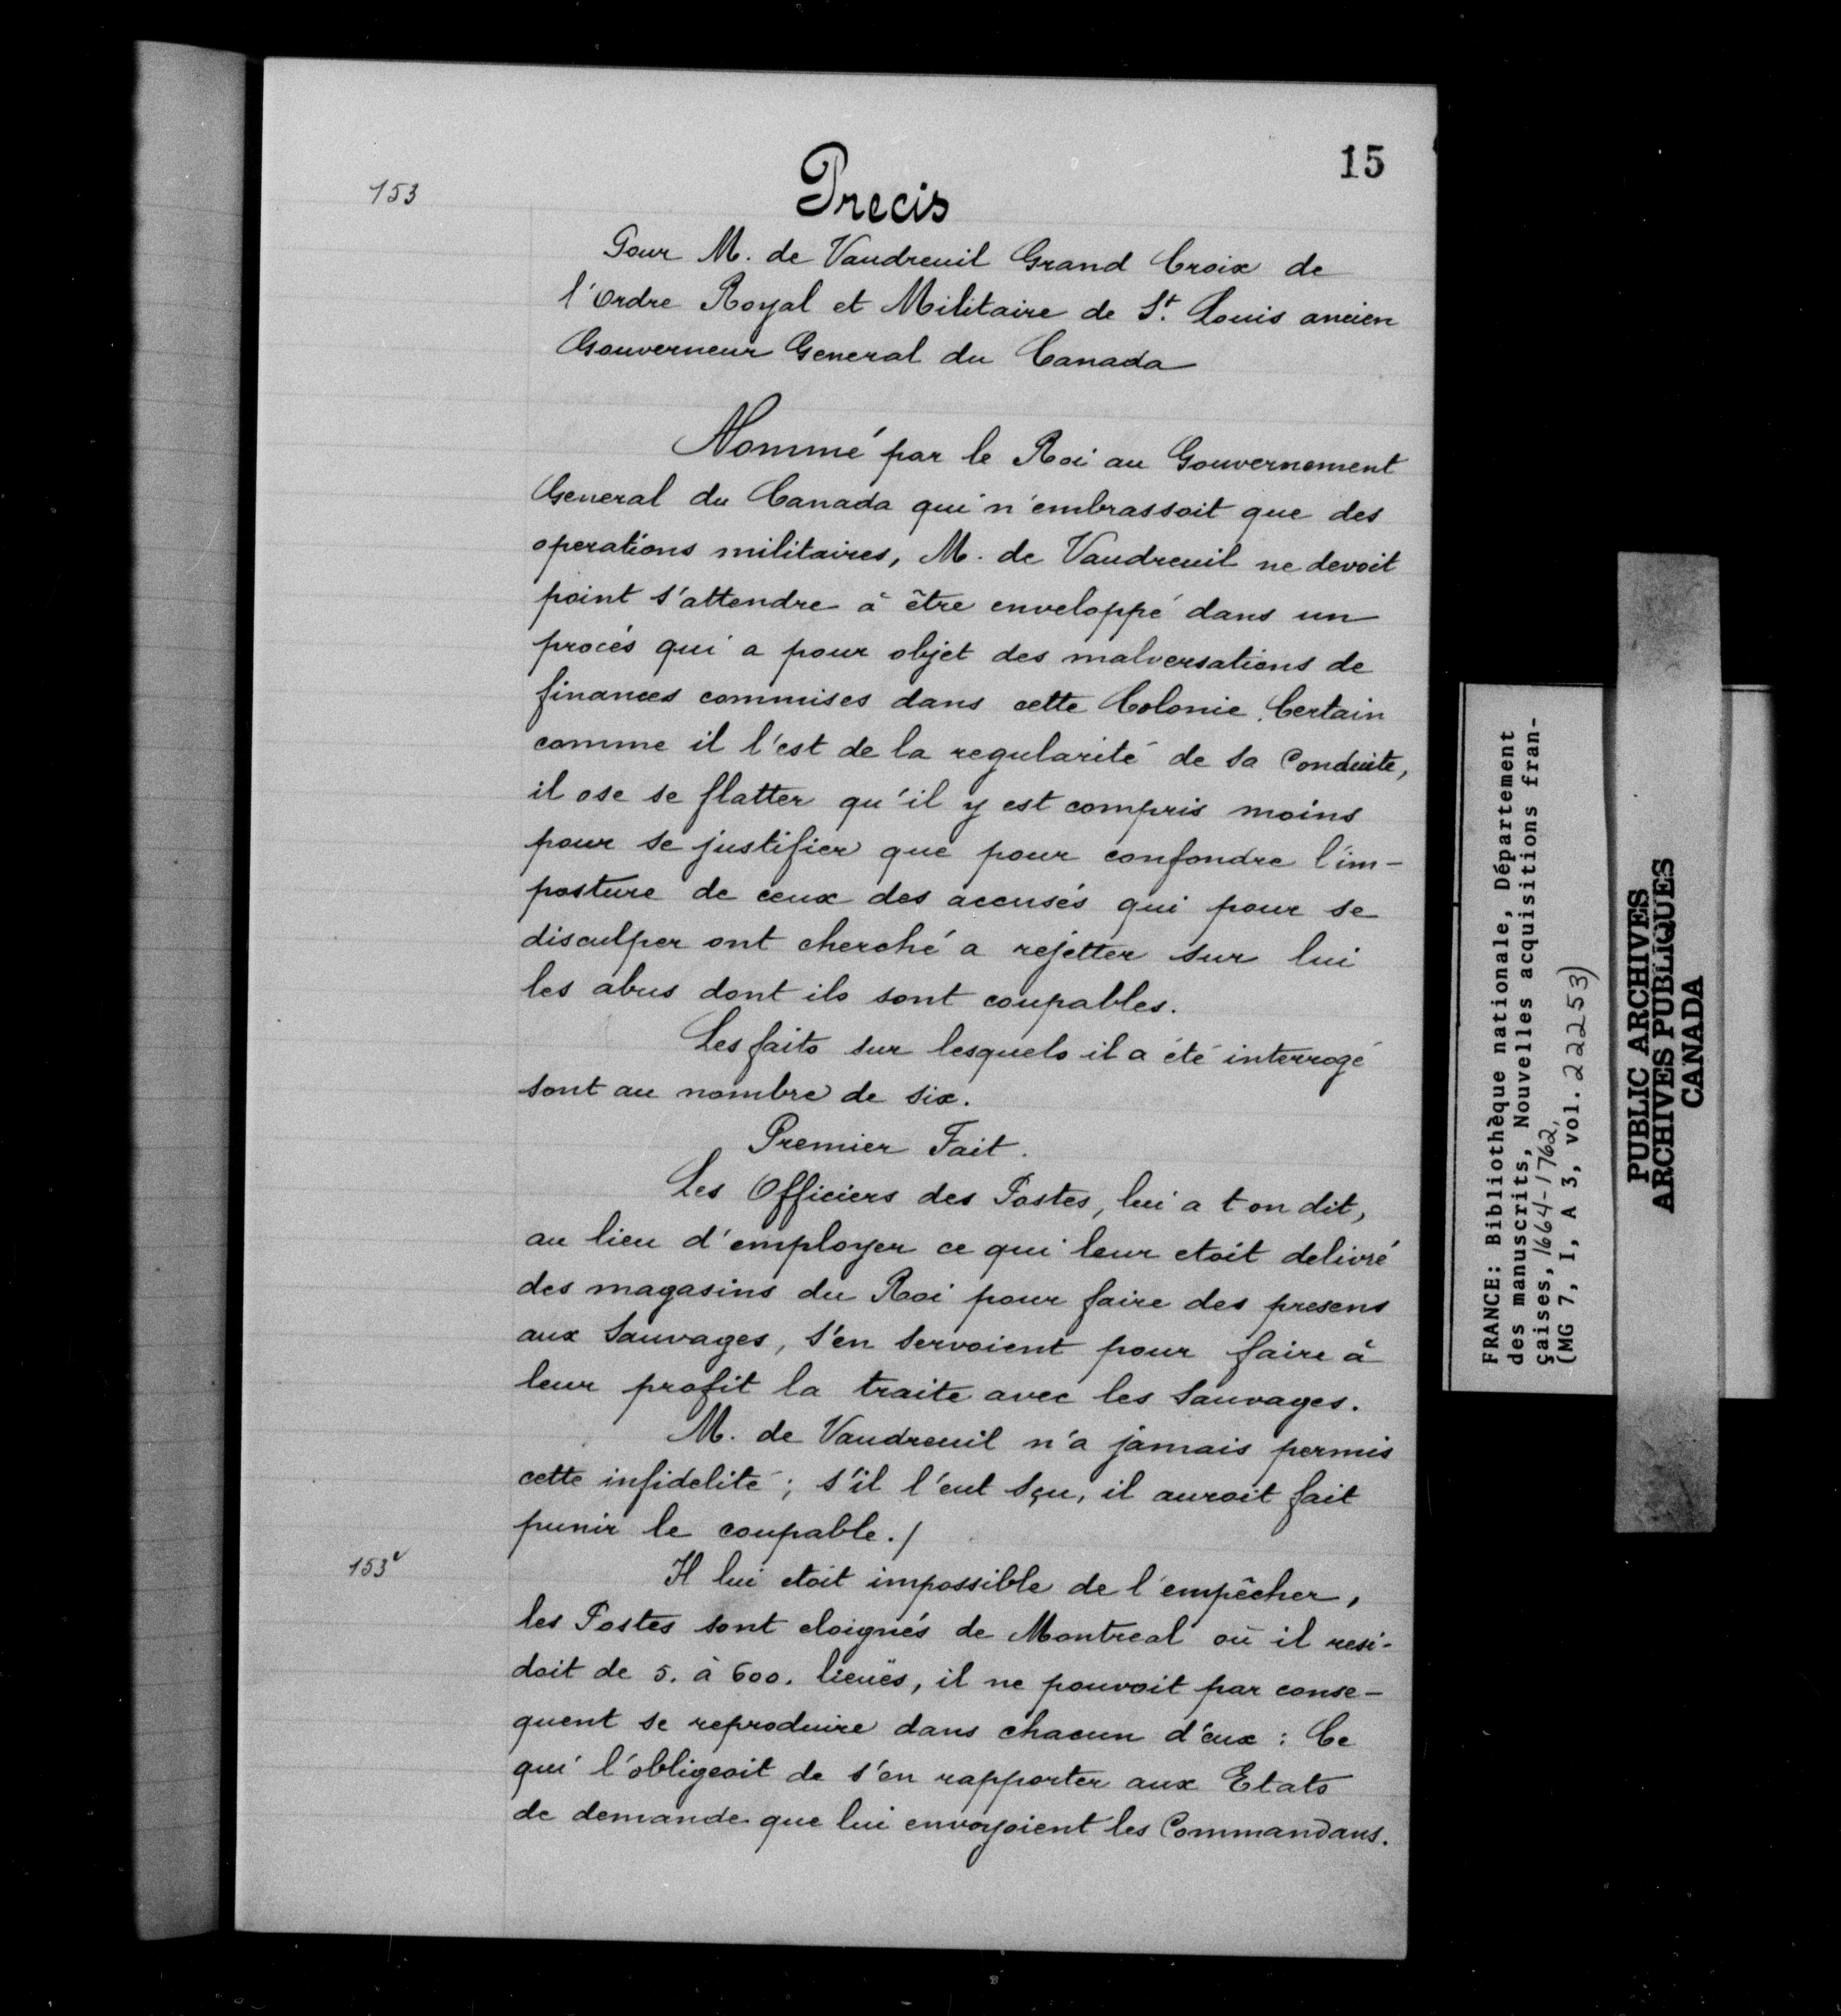 15
153
Precis
Pour M. de Vaudreuil Grand Croix de
l'Ordre Royal et Militaire de St. Louis ancien
Gouverneur General du Canada
Nommé par le Roi au Gouvernement
General du Canada qui n'embrassoit que des
operations militaires, M. de Vaudreuil ne devoit
point s'attendre à être enveloppé dans un
procés qui a pour objet des malversations de
finances commises dans cette Colonie. Certain
comme il l'est de la regularité de sa Conduite,
il ose se flatter qu'il y est compris moins
pour se justifier que pour confondre l'im-
posture de ceux des accusés qui pour se
disculper ont cherché a rejetter sur lui
les abus dont ils sont coupables.
Les faits sur lesquels il a été interrogé
sont au nombre de six.
Premier Fait.
Les Officiers des Postes, lui a t on dit,
au lieu d'employer ce qui leur etoit delivré
des magasins du Roi pour faire des presens
aux Sauvages, s'en servoient pour faire à
leur profit la traite avec les Sauvages.
M. de Vaudreuil n'a jamais permis
cette infidelité; s'il l'eut sçu, il auroit fait
punir le coupable./
153v
Il lui etoit impossible de l'empêcher,
les Postes sont eloignés de Montreal où il resi-
doit de 5. à 600. lieuës, il ne pouvoit par conse-
quent se reproduire dans chacun d'eux : Ce
qui l'obligeoit de s'en rapporter aux Etats
de demande que lui envoyoient les Commandans.
FRANCE: Bibliothèque nationale, Département
des manuscrits, Nouvelles acquisitions fran-
çaises, 1664-1762,
(MG 7, I, A 3, vol. 22253)
PUBLIC ARCHIVES
ARCHIVES PUBLIQUES
CANADA